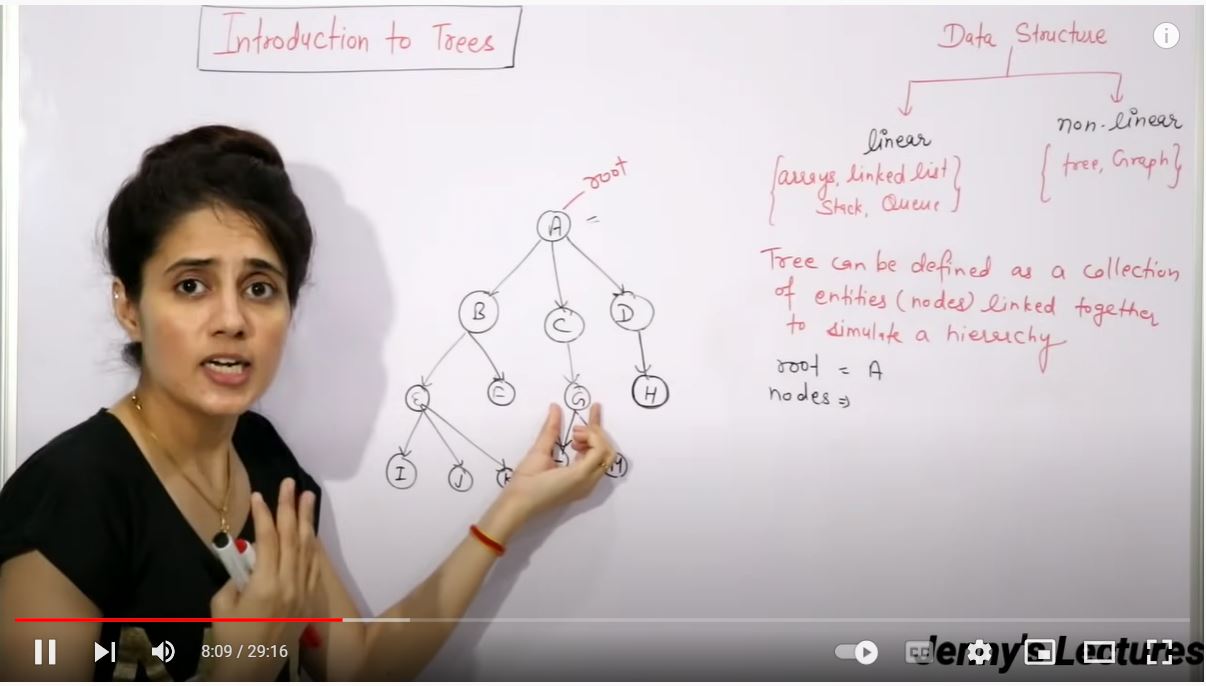 Introduction to Trees
Data Structure
linear
non-linear
{arrays, linked list
Stack, Queue}
{tree, Graph}
root
A
B
C
D
E
F
G
H
I
J
K
L
M
Tree can be defined as a collection
of entities (nodes) linked together
to simulate a hierarchy
root = A
nodes ⇒
8:09 / 29:16
Jenny's Lectures